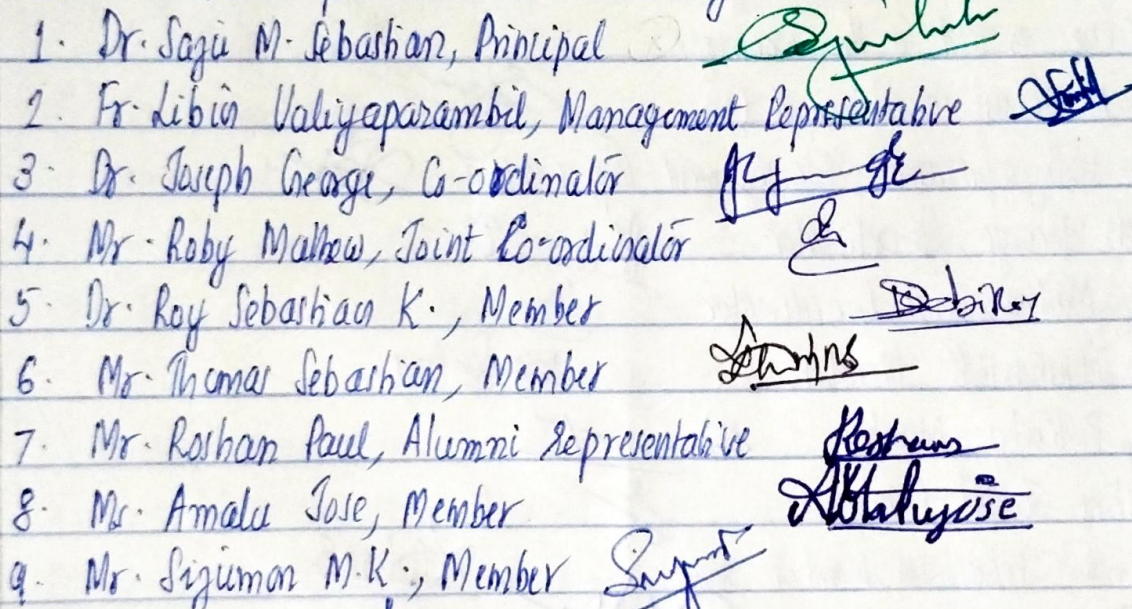 1. Dr. Saju M. Sebastian, Principal
2. Fr. Libin Valiyaparambil, Management Representative
3. Dr. Joseph George, Co-ordinator
4. Mr. Roby Mathew, Joint Co-ordinator
5. Dr. Roy Sebastian K., Member
6. Mr. Thomas Sebastian, Member
7. Mr. Roshan Paul, Alumni Representative
8. Ms. Amalu Jose, Member
9. Mr. Sijumon M.K., Member